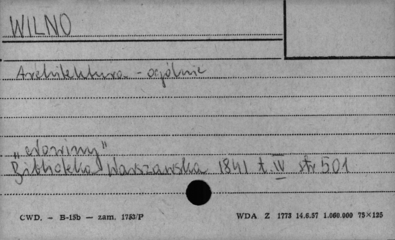 WILNO
Architektura - ogólnie
Biblioteka Warszawska 1841 t. IV str 501
CWD. — B-15b — zam. 1753/P
WDA Z 1773 14.6.57 1.000.000 75×125